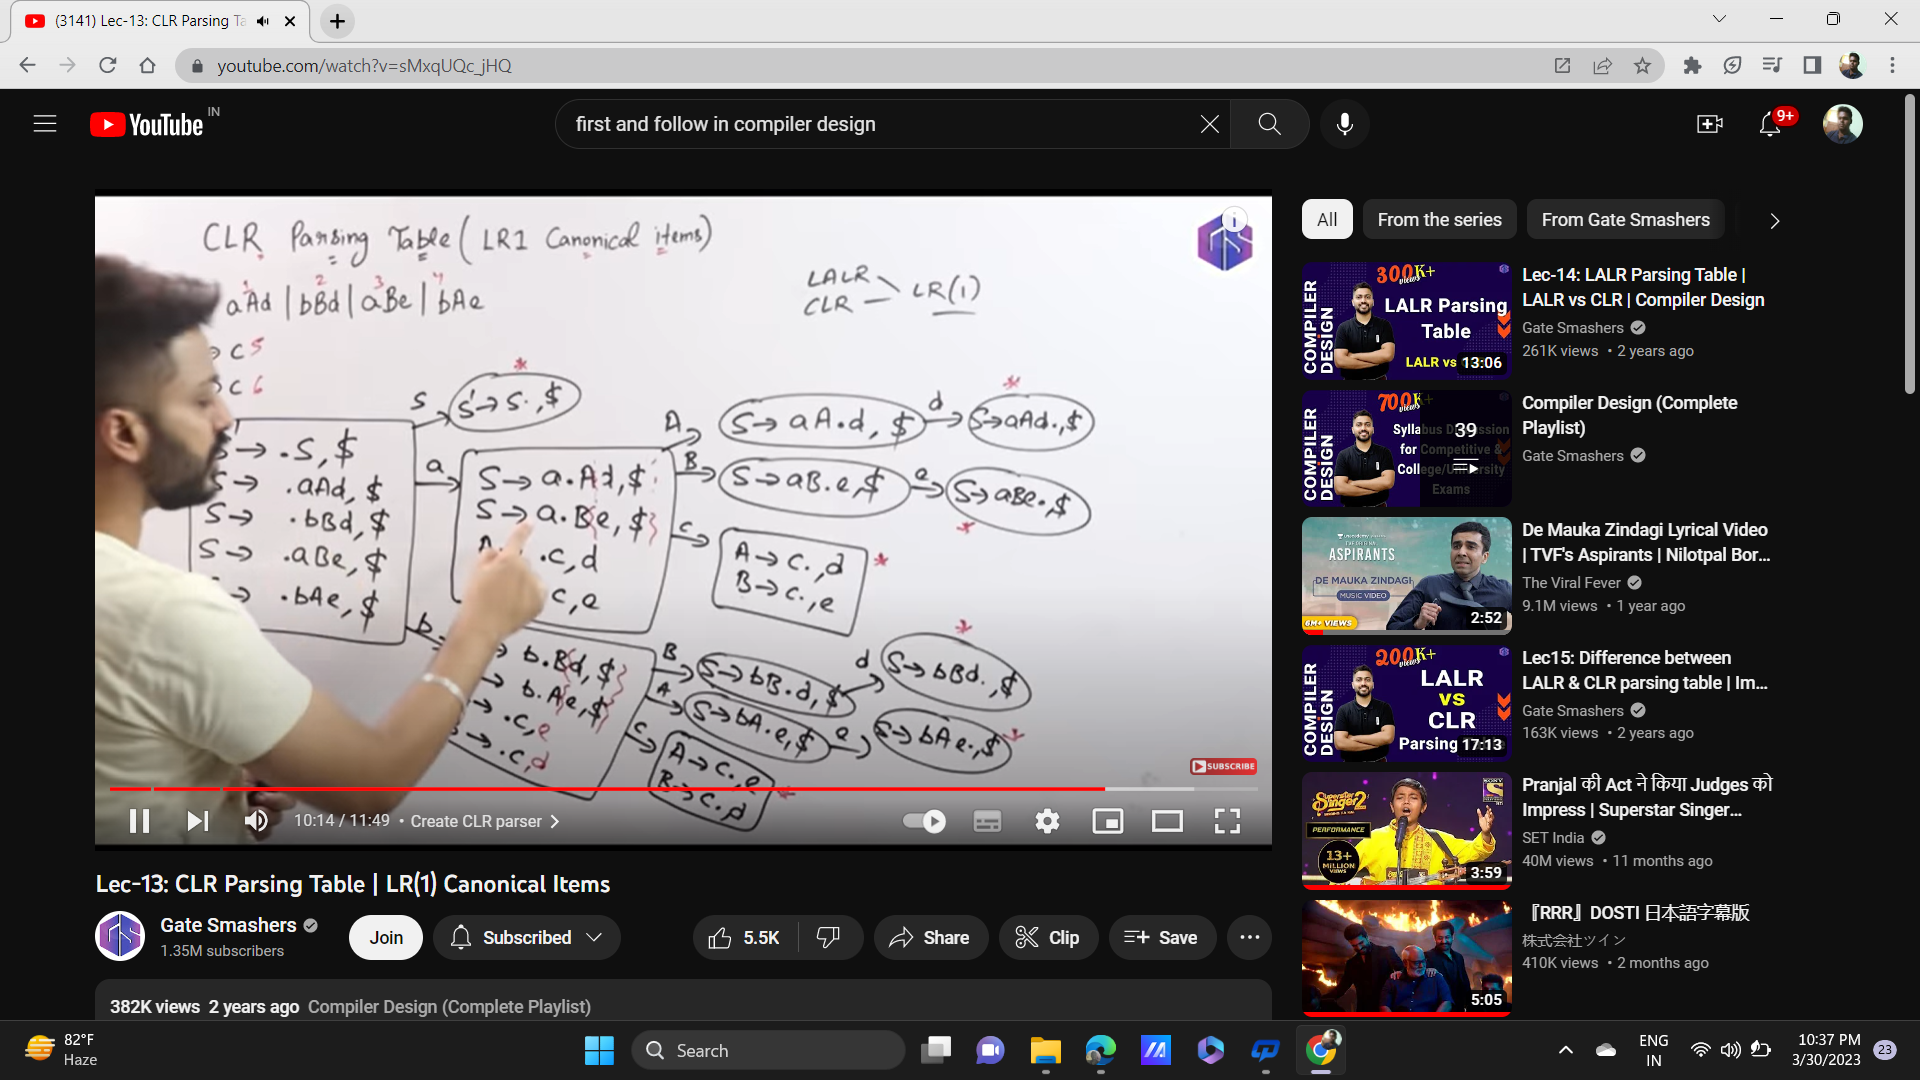 (3141) Lec-13: CLR Parsing Ta
youtube.com/watch?v=sMxqUQc_jHQ
YouTube IN
first and follow in compiler design
9+
CLR Parsing Table ( LR1 Canonical items)
1 2 3 4
aAd | bBd | aBe | bAe
LALR
CLR
LR(1)
c 5
c 6
S
S' → S. , $
→ .S, $
S → .aAd, $
S → .bBd, $
S → .aBe, $
→ .bAe, $
a
S → a.Ad, $
S → a.Be, $
.c, d
c, e
A
S → aA.d, $
d
S → aAd., $
B
S → aB.e, $
e
S → aBe., $
c
A → c., d
B → c., e
b
b.Bd, $
→ b.Ae, $
→ .c, e
→ .c, d
B
S → bB.d, $
d
S → bBd. , $
A
S → bA.e, $
e
S → bAe., $
c
A → c., e
B → c., d
SUBSCRIBE
10:14 / 11:49 • Create CLR parser
Lec-13: CLR Parsing Table | LR(1) Canonical Items
Gate Smashers
1.35M subscribers
Join
Subscribed
5.5K
Share
Clip
Save
382K views 2 years ago Compiler Design (Complete Playlist)
All
From the series
From Gate Smashers
COMPILER DESIGN
300K+ views
LALR Parsing
Table
LALR vs
13:06
Lec-14: LALR Parsing Table |
LALR vs CLR | Compiler Design
Gate Smashers
261K views • 2 years ago
COMPILER DESIGN
700K+
Syllabus Discussion
for Competitive &
College/University
Exams
39
Compiler Design (Complete
Playlist)
Gate Smashers
ASPIRANTS
DE MAUKA ZINDAGI
MUSIC VIDEO
6M+ VIEWS
2:52
De Mauka Zindagi Lyrical Video
| TVF's Aspirants | Nilotpal Bor...
The Viral Fever
9.1M views • 1 year ago
COMPILER DESIGN
200K+ views
LALR
VS
CLR
Parsing
17:13
Lec15: Difference between
LALR & CLR parsing table | Im...
Gate Smashers
163K views • 2 years ago
Superstar
Singer 2
PERFORMANCE
13+
MILLION
VIEWS
SONY
3:59
Pranjal की Act ने किया Judges को
Impress | Superstar Singer...
SET India
40M views • 11 months ago
5:05
『RRR』DOSTI 日本語字幕版
株式会社ツイン
410K views • 2 months ago
82°F
Haze
Search
ENG
IN
10:37 PM
3/30/2023
23